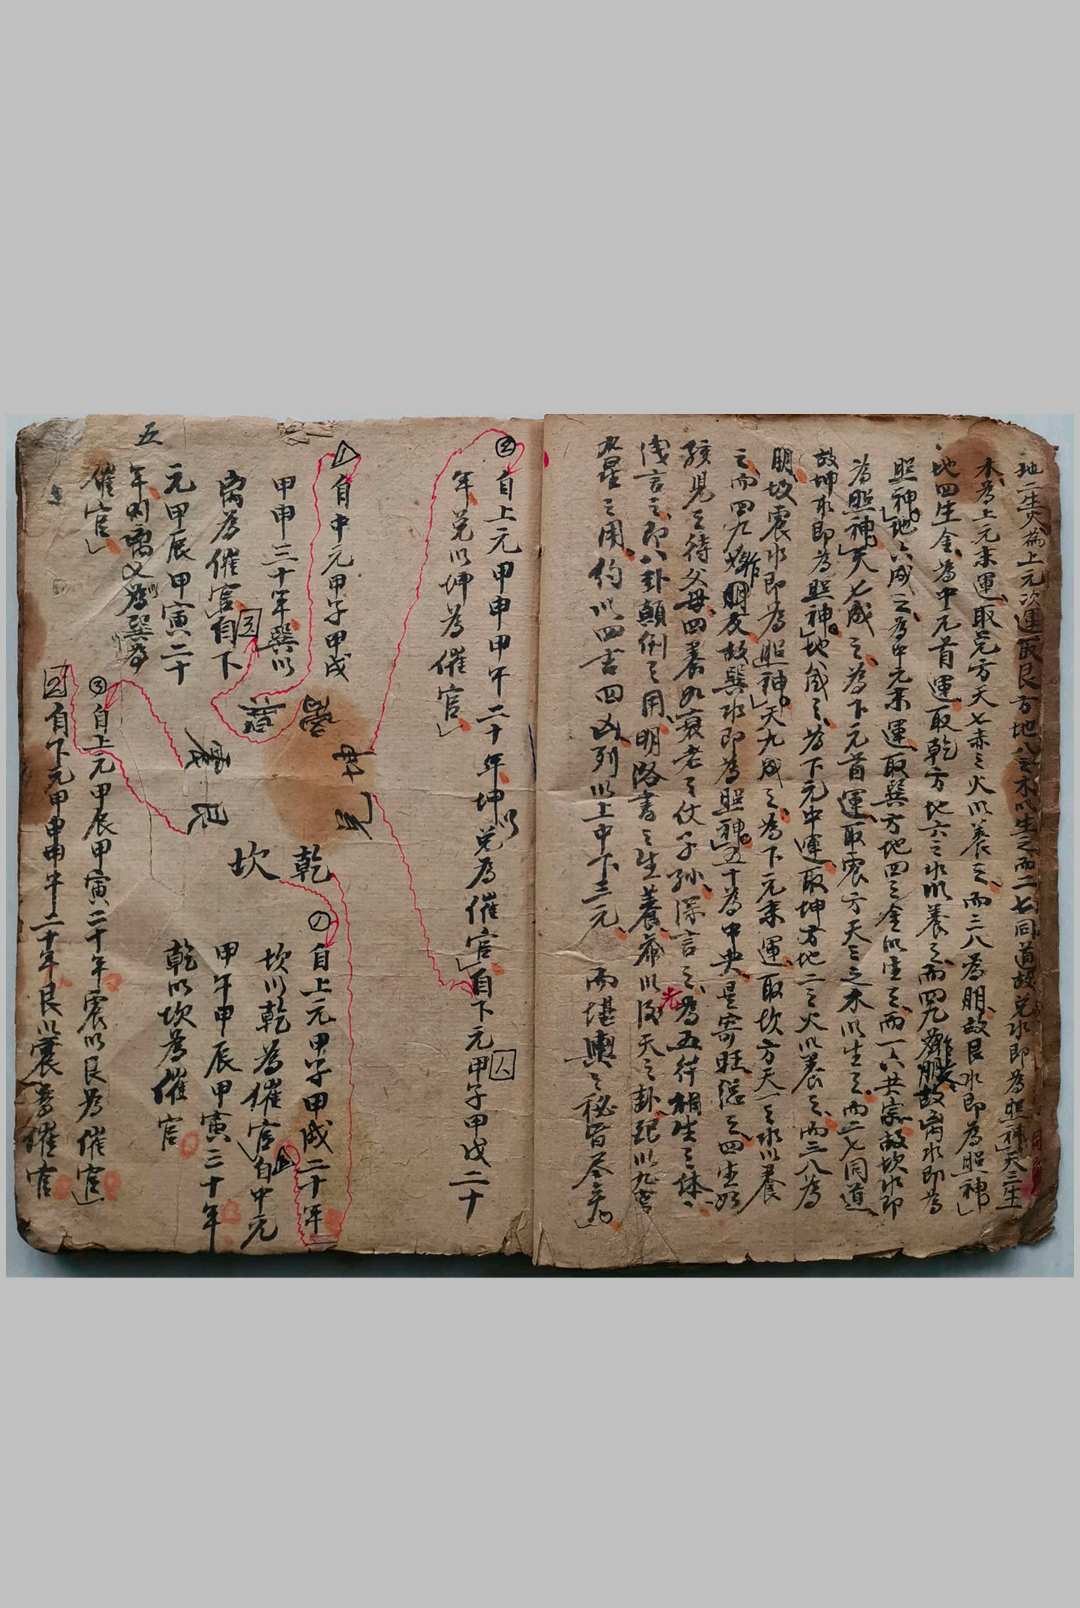 地二生火為上元次運取艮方地八之木以生之而二七同道故兌水即為照神天三生
木為上元末運取兌方天七赤之火以養之而三八為朋故艮水即為照神
地四生金為中元首運取乾方地六之水以養之而四九為朋友故离水即為
照神地六成之為中元末運取巽方地四之金以生之而一六共宗故坎水即
為照神天七成之為下元首運取震方天三之木以生之而二七同道
故坤水即為照神地八成之為下元中運取坤方地二之火以養之而三八為
朋故震水即為照神天九成之為下元末運取坎方天一之水以養
之而四九為朋友故巽水即為照神五十為中央是寄旺從之四生如
孩兒之待父母四養如衰老之仗子孫深言之為五行相生之体
淺言之即八卦顛倒之用明洛書之生養藉以後天之卦配以九宮
九星之用約以四吉四凶列以上中下三元而堪輿之秘旨盡矣
② 自上元甲申甲午二十年坤以兌為催官自下元甲子甲戌二十
年兌以坤為催官
自中元甲子甲戌
甲申三十年巽以
离為催官自下
元甲辰甲寅二十
年 离 為巽
催官
五
坤
兌
艮
震
乾
坎
① 自上元甲子甲戌二十年
坎以乾為催官自中元
甲午甲辰甲寅三十年
乾以坎為催官
③ 自上元甲辰甲寅二十年震以艮為催官
自下元甲申甲午二十年艮以震為催官